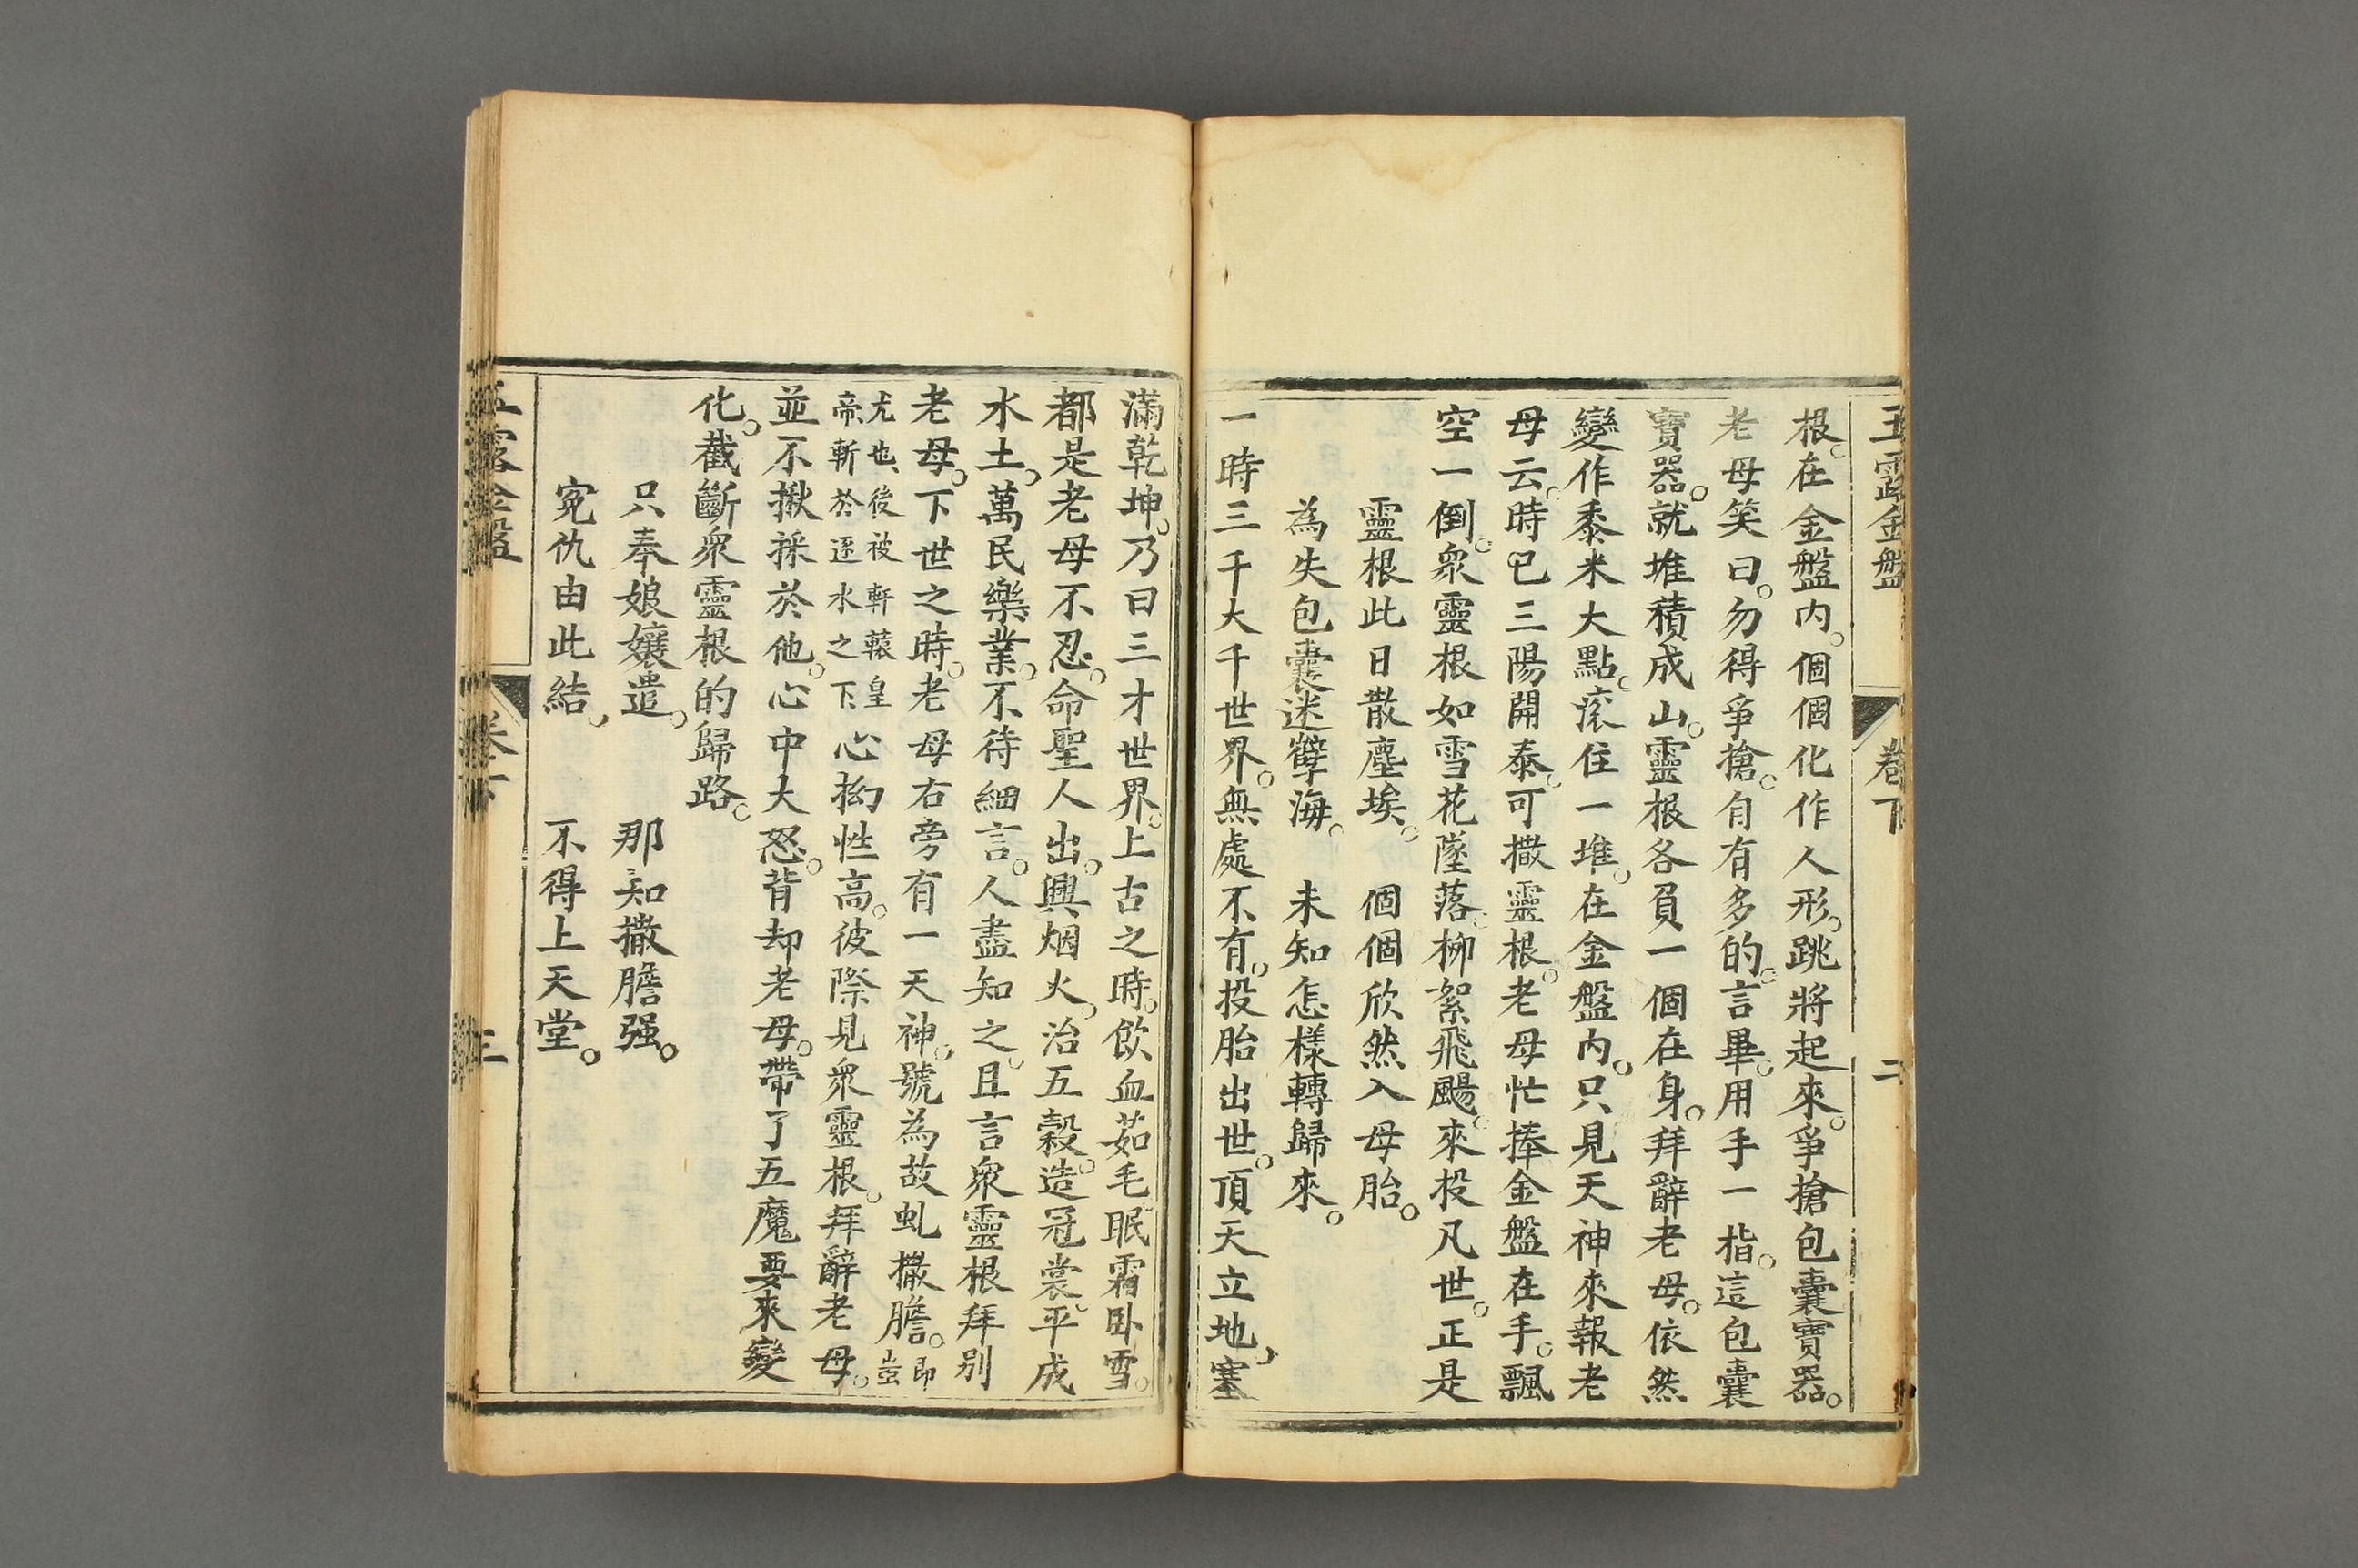 玉露金盤 卷下 二
根。在金盤内。個個化作人形。跳將起來。爭搶包囊寶器。
老母笑曰。勿得爭搶。自有多的。言畢。用手一指。這包囊
寶器。就堆積成山。靈根各負一個在身。拜辭老母。依然
變作黍米大點。滾住一堆。在金盤内。只見天神來報老
母云。時已三陽開泰。可撒靈根。老母忙捧金盤在手。飄
空一倒。衆靈根如雪花墜落。柳絮飛颺。來投凡世。正是
靈根此日散塵埃。 個個欣然入母胎。
為失包囊迷孽海。 未知怎樣轉歸來。
一時三千大千世界。無處不有。投胎出世。頂天立地。塞
滿乾坤。乃曰三才世界。上古之時。飲血茹毛。眠霜卧雪。
都是老母不忍。命聖人出。興烟火。治五穀。造冠裳。平成
水土。萬民樂業。不待細言。人盡知之。且言衆靈根拜别
老母。下世之時。老母右旁有一天神。號為故虬撒膽。即蚩
尤也、後被軒轅皇帝、斬於逐水之下、心拗性高。彼際見衆靈根。拜辭老母。
並不揪採於他。心中大怒。背却老母。帶了五魔。要來變
化。截斷衆靈根的歸路。
只奉娘孃遣。 那知撒膽强。
冤仇由此結。 不得上天堂。
玉露金盤 卷下 三